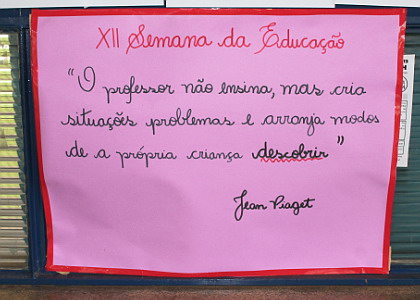 XII Semana da Educação
"O professor não ensina, mas cria
situações problemas e arranja modos
de a própria criança descobrir"
Jean Piaget